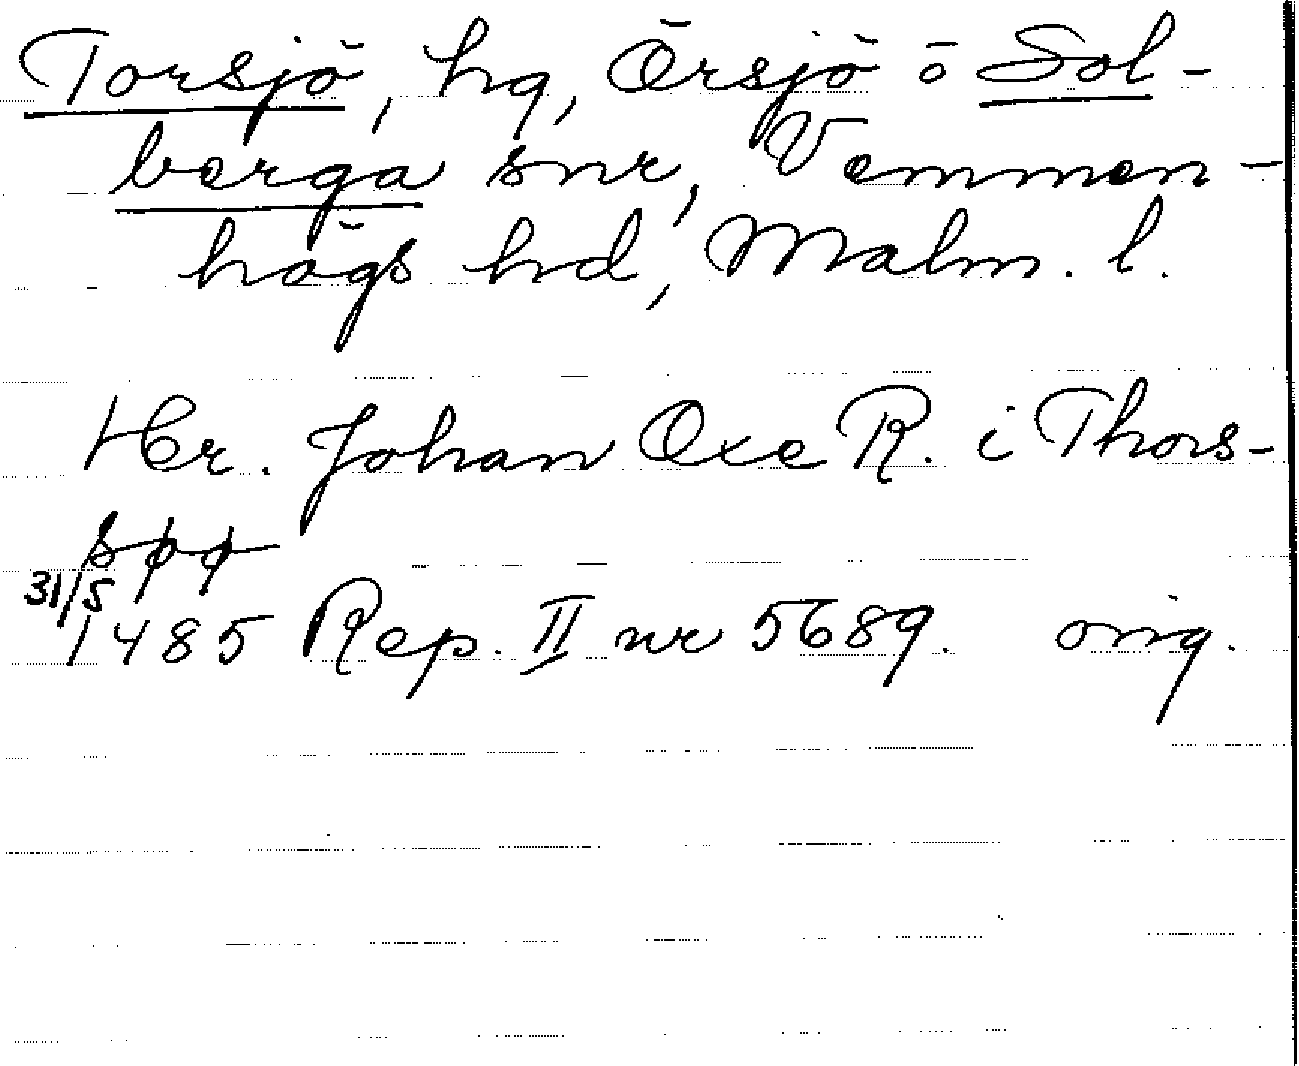 Torsjö, hg, Örsjö o Sol-
berga snr, Vemmen-
högs hd, Malm. l.
Her. Johan Oxe R. i Thors-
søø
31/5
1485 Rep. II nr 5689. orig.